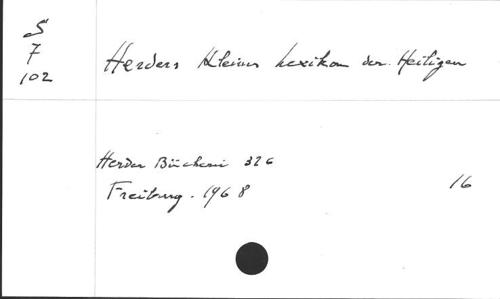 S
7
102
Herders Kleines Lexikon der Heiligen
Herder Bücherei 326
Freiburg. 1968
16